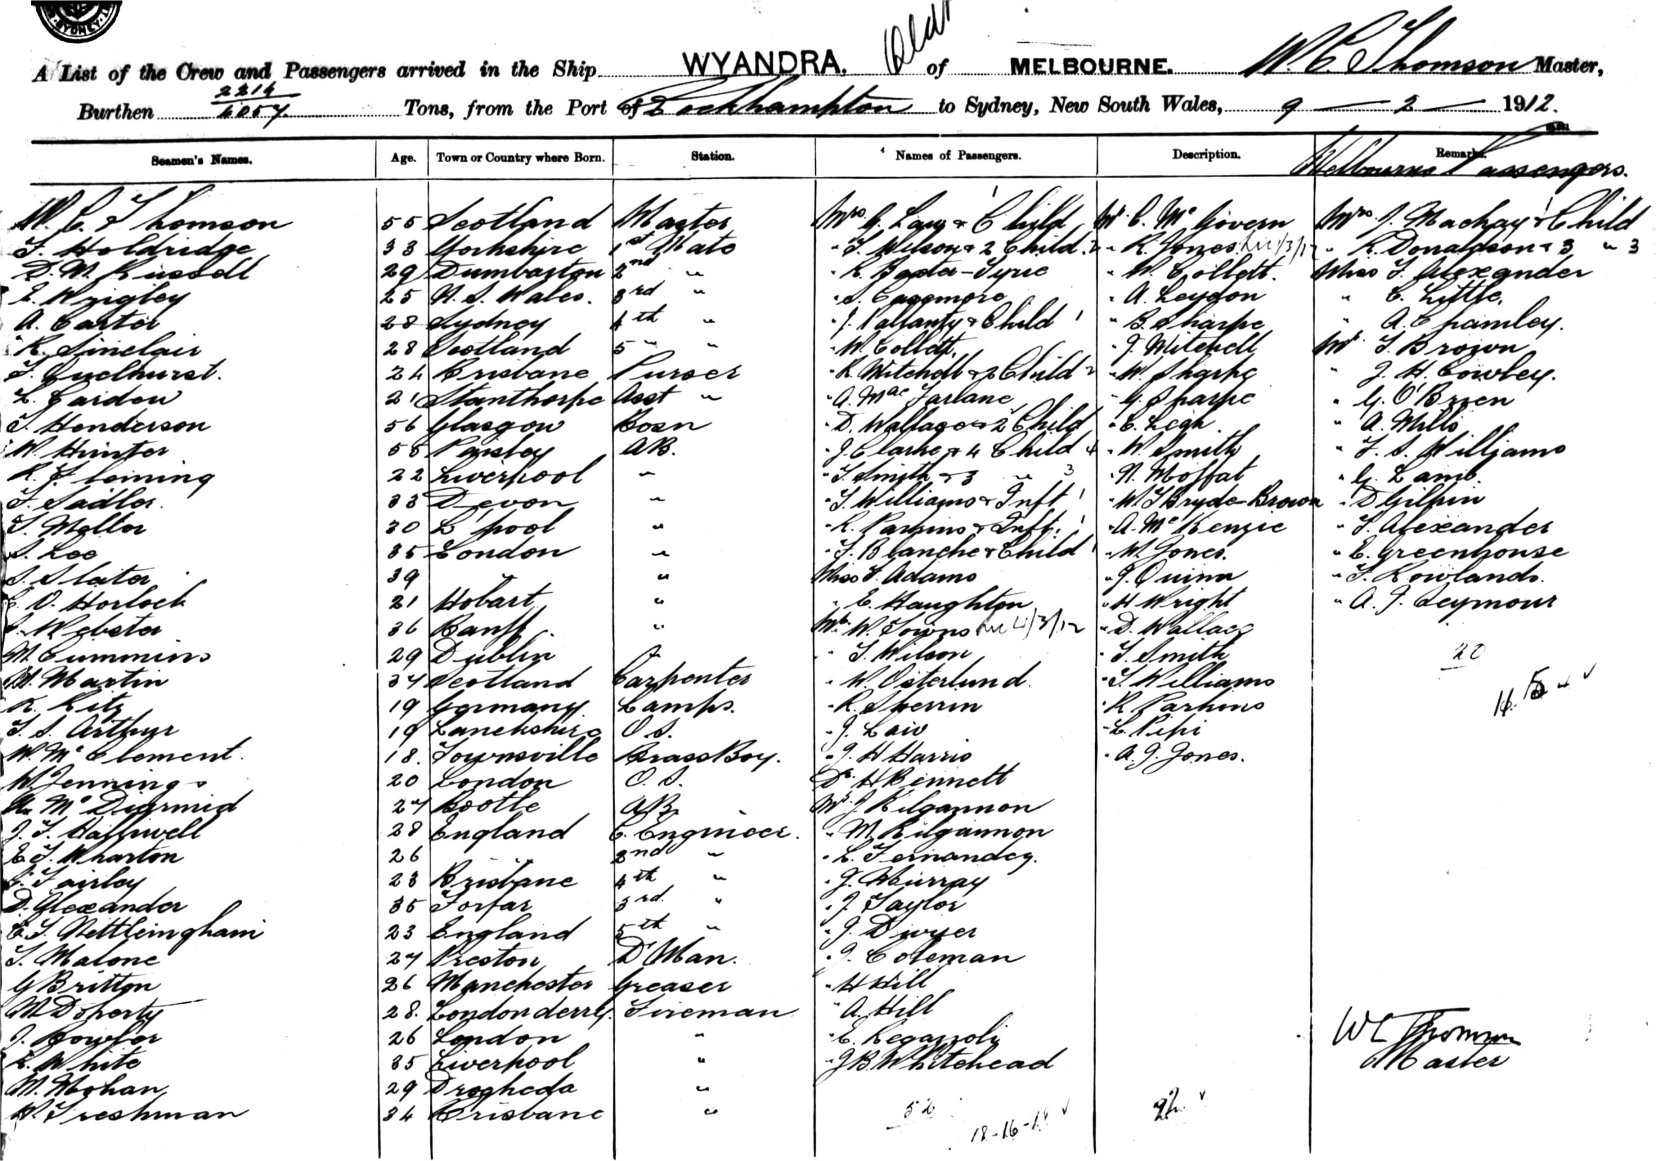 SYDNEY
A List of the Crew and Passengers arrived in the Ship WYANDRA. of MELBOURNE. W. C. Thomson Master,
Burthen 4057 Tons, from the Port of Rockhampton to Sydney, New South Wales, 9 – 2 – 1912.
Seamen's Names. Age. Town or Country where Born. Station. Names of Passengers. Description. Remarks.
Melbourne Passengers.
W. C. Thomson 55 Scotland Master Mrs G. Law & Child 1 Mr C. McGovern Mrs J. Mackay & Child
T. Holdridge 33 Yorkshire 1st Mate " T. Wilson & 2 Child. 2 " R. Jones " R. Donaldson & 3 " 3
D. M. Russell 29 Dumbarton 2nd " " R. " W. Collett. Miss T. Alexander
E. Wrigley 25 N. S. Wales. 3rd " " S. " A. Leydon " E. Little.
A. Carter 28 Sydney 4th " " J. & Child 1 " B. Sharpe " A.
R. Sinclair 28 Scotland 5 " " " W. Collett. " J. Mitchell Mr T. Brown
24 Brisbane Purser " R. Mitchell & 2 Child 2 " W. Sharpe " J. H. Cowley.
21 Stanthorpe Asst " " A. MacFarlane " G. Sharpe " G. O'Brien
T. Henderson 56 Glasgow Bosn " D. Wallace & 2 Child " E. Leigh " A. Mills
W. Hunter 55 Paisley A.B. " J. Clarke & 4 Child 4 " W. Smith " T. S. Williams
22 Liverpool " " T. Smith & 3 " 3 " N. Moffat " G. Lamb
T. Sadler 33 Devon " " T. Williams & Inft 1 " W. T. Bryde-Brown " D. Gilpin
T. Mellor 30 L'pool " " R. Parkins & Inft. 1 " A. McKenzie " T. Alexander
S. Lee 35 London " " T. Blanche & Child 1 " W. Jones. " E. Greenhouse
S. Slater 39 " " Miss T. Adams " J. Quinn " T. Rowlands.
C. O. Horlock 21 Hobart " " E. Haughton " H. Wright " A. J. Seymour
J. Webster 36 Banff. " Mr W. Towns " D. Wallace
M. Cummins 29 Dublin " " T. Wilson " T. Smith 20
M. Martin 34 Scotland Carpenter " W. Osterlund. " T. Williams
R. Ritz 19 Germany Lamps. " R. Sperrin " R. Parkins
T. S. Arthur 19 Lancashire O.S. " J. Law " L. Pipi
W. McClement. 18. Townsville Brass Boy. " J. H. Harris " A. J. Jones.
W. Jennings 20 London O.S. Dr H. Bennett
McDiarmid 27 Bootle A.B. Mr J. Kilgannon
J. T. Halliwell 28 England C. Engineer. " M. Kilgannon
E. T. Wharton 26 " 2nd " " L. Fernandez.
J. Fairley 23 Brisbane 4th " " J. Murray
D. Alexander 35 Forfar 3rd " " J. Taylor
C. T. Nettleingham 23 England 5th " " J. Dwyer
T. Malone 27 Preston D'Man. " J. Coleman
G. Britton 26 Manchester Greaser " H. Hill
M. Doherty 28. Londonderry. Fireman " A. Hill
J. Bowler 26 London " " E. Regazzoli
L. White 35 Liverpool " " J. B. Whitehead
M. Mohan 29 Drogheda "
W. Freshman 34 Brisbane " 52
W C Thomson
Master